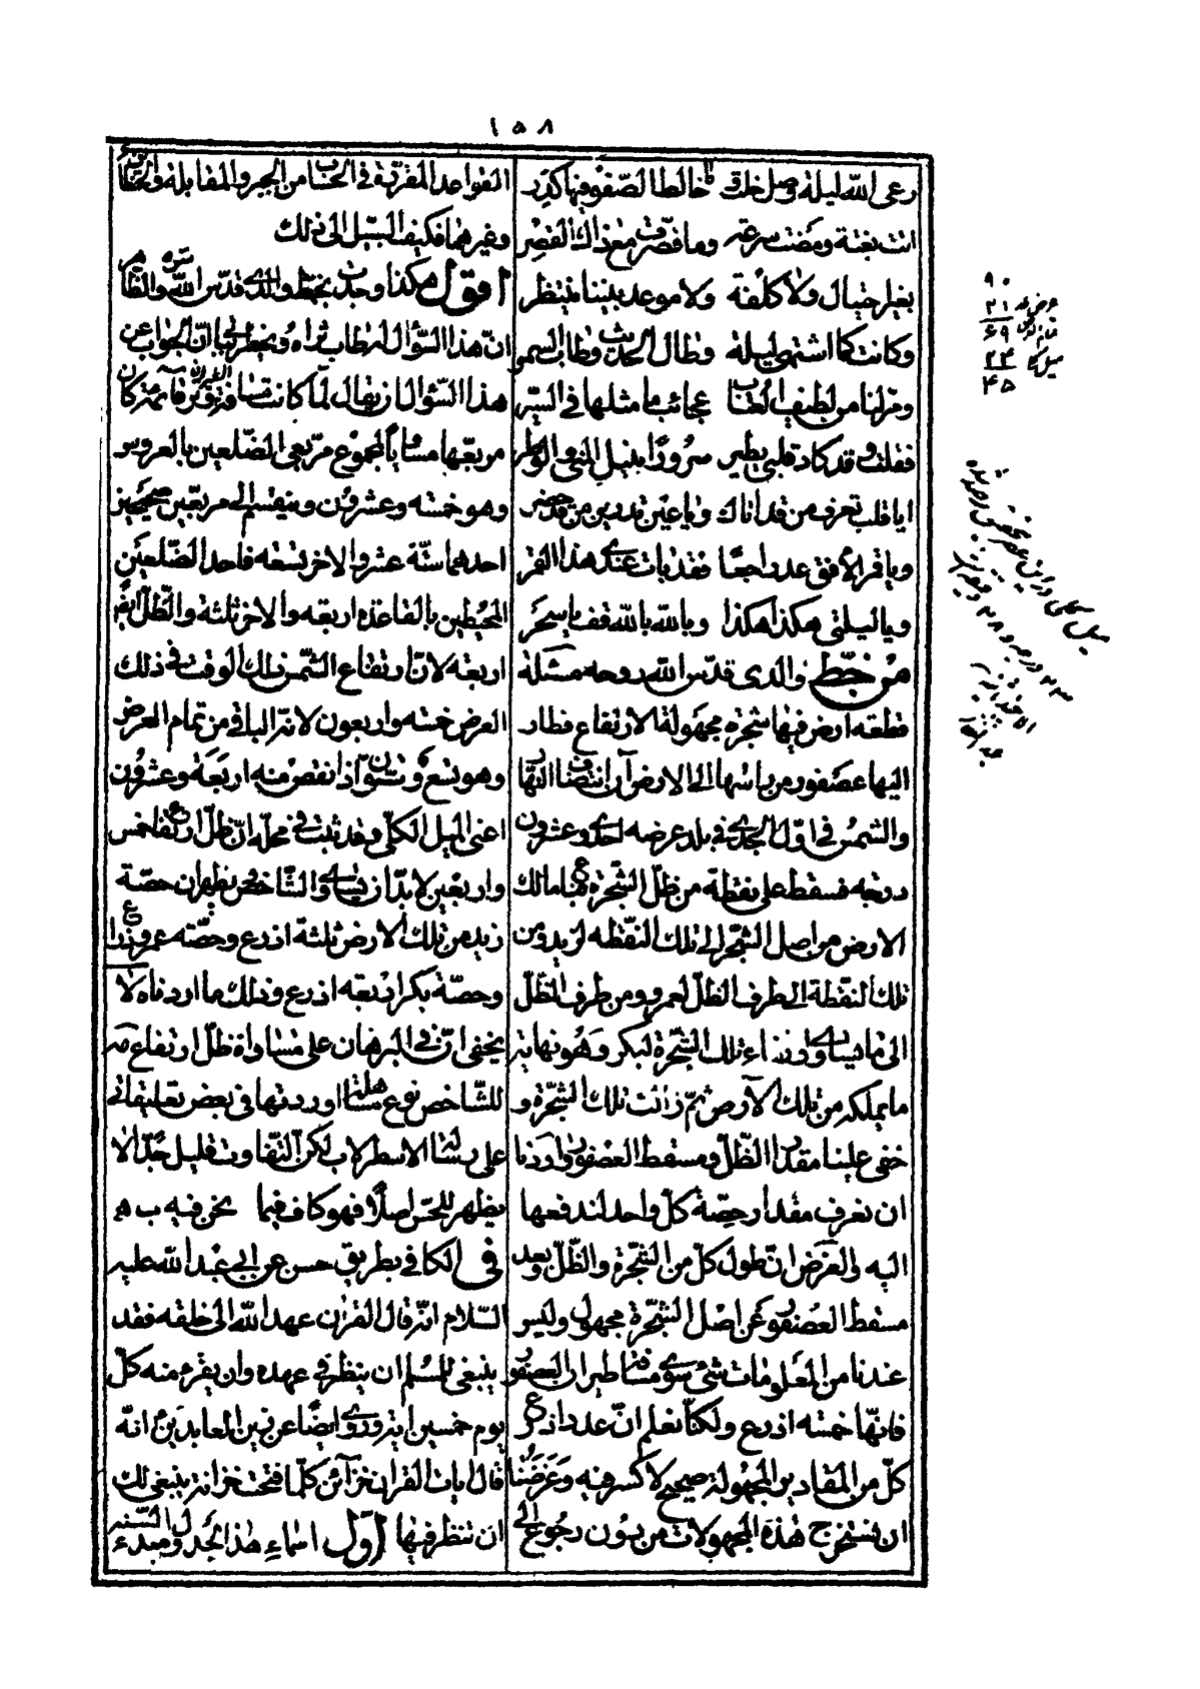 ١٥٨
رعى الله ليلة وصل خلت وما خالط الصفو فيها كدر
اتت بغتة ومضت سرعة وما قصرت مع ذاك القصر
بغير احتيال ولا كلفة ولا موعد بيننا ينتظر
وكانت كما اشتهى ليلة وطال الحديث وطاب السمر
ومر لنا من لطيف العتاب عجائب ما مثلها في السير
فقلت وقد كاد قلبى يطير سرورا بنيل المنى والوطر
ايا قلب تعرف من قد اتاك ويا عين تدرين من قد حضر
ويا قمر الأفق عد راجعا فقد بات عندى هذا القمر
ويا ليلتى هكذا هكذا وبالله بالله قف يا سحر
من خط والدى قدس الله روحه مسئلة
قطعه ارض فيها شجرة مجهولة الارتفاع فطار
اليها عصفور من راسها الى الارض آن انتصاف النهار
والشمس في اول الجدى في بلد عرضه احدى وعشرون
درجه فسقط على نقطة من ظل الشجرة فباع مالك
الارض من اصل الشجر الى تلك النقطه لزيد ومن
تلك النقطة الى طرف الظل لعمرو ومن طرف الظل
الى ما يساوى ارتفاع تلك الشجرة لبكر وهو نهاية
ما يملكه من تلك الأرض ثم زالت تلك الشجرة و
خفى علينا مقدار الظل ومسقط العصفور واردنا
ان نعرف مقدار حصة كل واحد لندفعها
اليه والغرض ان طول كل من الشجرة والظل وبعد
مسقط العصفور عن اصل الشجرة مجهول وليس
عندنا من المعلومات شئ سوى مسافة طيران العصفور
فانها خمسة اذرع ولكنا نعلم ان عدد اذرع
كل من المقادير المجهولة صحيح لا كسر فيه وغرضنا
ان نستخرج هذه المجهولات من دون رجوع الى
القواعد المقررة في الحساب من الجبر والمقابلة والخطاين
وغيرهما فكيف السبيل الى ذلك
اقول هكذا وجدت بخط والدى قدس الله سره والظاهر
ان هذا السؤال له طاب ثراه ويخطر ببالى ان الجواب عن
هذا السؤال ان يقال لما كانت مسافة الطيران وتر قائمة كان
مربعها مساويا لمجموع مربعى الضلعين بالعروس
وهو خمسه وعشرون وينقسم الى مربعين صحيحين
احدهما ستة عشر والاخر تسعه فاحد الضلعين
المحيطين بالقاعده اربعه والاخر ثلثة والظل ايضا
اربعه لان ارتفاع الشمس ذلك الوقت في ذلك
العرض خمسه واربعون لانه الباقى من تمام العرض
وهو تسع وستون اذا نقص منه اربعة وعشرون
اعنى الميل الكلى وقد ثبت في محله ان ظل ارتفاع خمس
واربعين لا بد ان يساوى الشاخص فظهر ان حصة
زيد من تلك الارض ثلثة اذرع وحصه عمرو ذراع
وحصة بكر اربعه اذرع وذلك ما اردناه لا
يخفى ان في البرهان على مساواة ظل ارتفاع مه
للشاخص نوع مساهلة اوردتها فى بعض تعليقاتى
على رسالة الاسطرلاب لكن التفاوت قليل جدا لا
يظهر للحس اصلا فهو كاف فيما نحن فيه
فى الكافى بطريق حسن عن ابى عبد الله عليه
السلام انه قال القران عهد الله الى خلقه فقد
ينبغى للمسلم ان ينظر في عهده وان يقرء منه كل
يوم خمسين اية وروى ايضا عن زين العابدين انه
قال ايات القران خزآئن كلما فتحت خزانة ينبغى لك
ان تنظر فيها اول اسماء هذا الجدول السنه ومبدء
٩٠
٢١
٦٩
٢٤
٤٥
عرض بلد
تمام العرض
ميل كلى